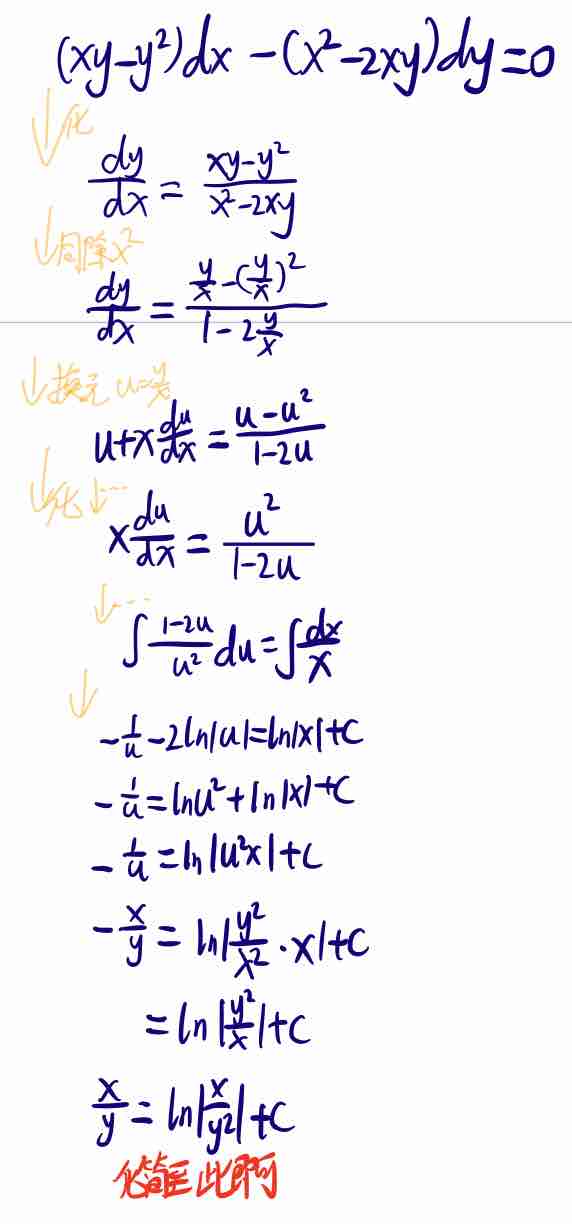 (xy-y²)dx - (x²-2xy)dy=0
↓化
dy/dx = (xy-y²)/(x²-2xy)
↓同除x²
dy/dx = (y/x-(y/x)²)/(1-2y/x)
↓换元 u=y/x
u+x du/dx = (u-u²)/(1-2u)
↓化 ↓…
x du/dx = u²/(1-2u)
↓…
∫(1-2u)/u² du=∫dx/x
↓
-1/u-2ln|u|=ln|x|+C
-1/u=lnu²+ln|x|+C
-1/u=ln|u²x|+C
-x/y=ln|y²/x²·x|+C
=ln|y²/x|+C
x/y=ln|x/y²|+C
化简至此即可